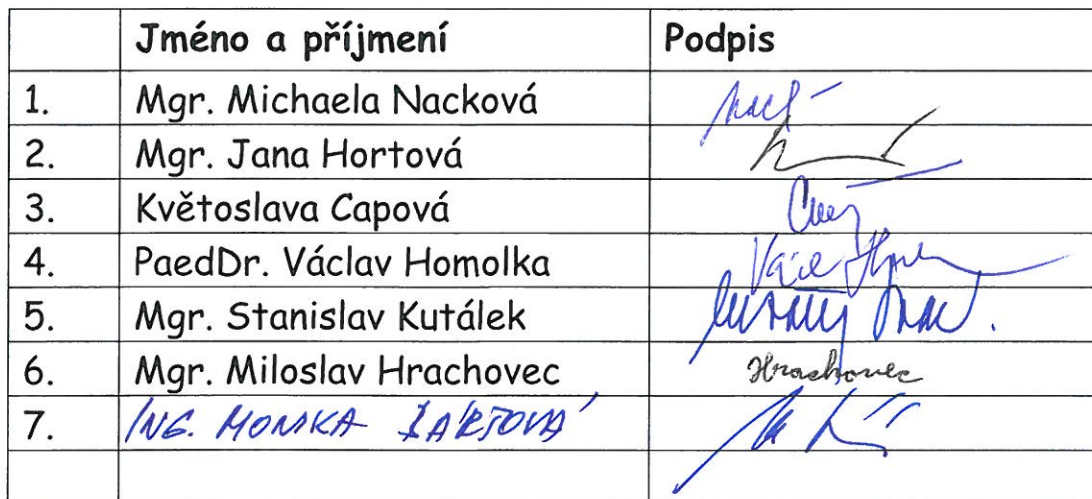 Jméno a příjmení Podpis
1. Mgr. Michaela Nacková
2. Mgr. Jana Hortová
3. Květoslava Capová
4. PaedDr. Václav Homolka
5. Mgr. Stanislav Kutálek
6. Mgr. Miloslav Hrachovec Hrachovec
7. ING. MONIKA